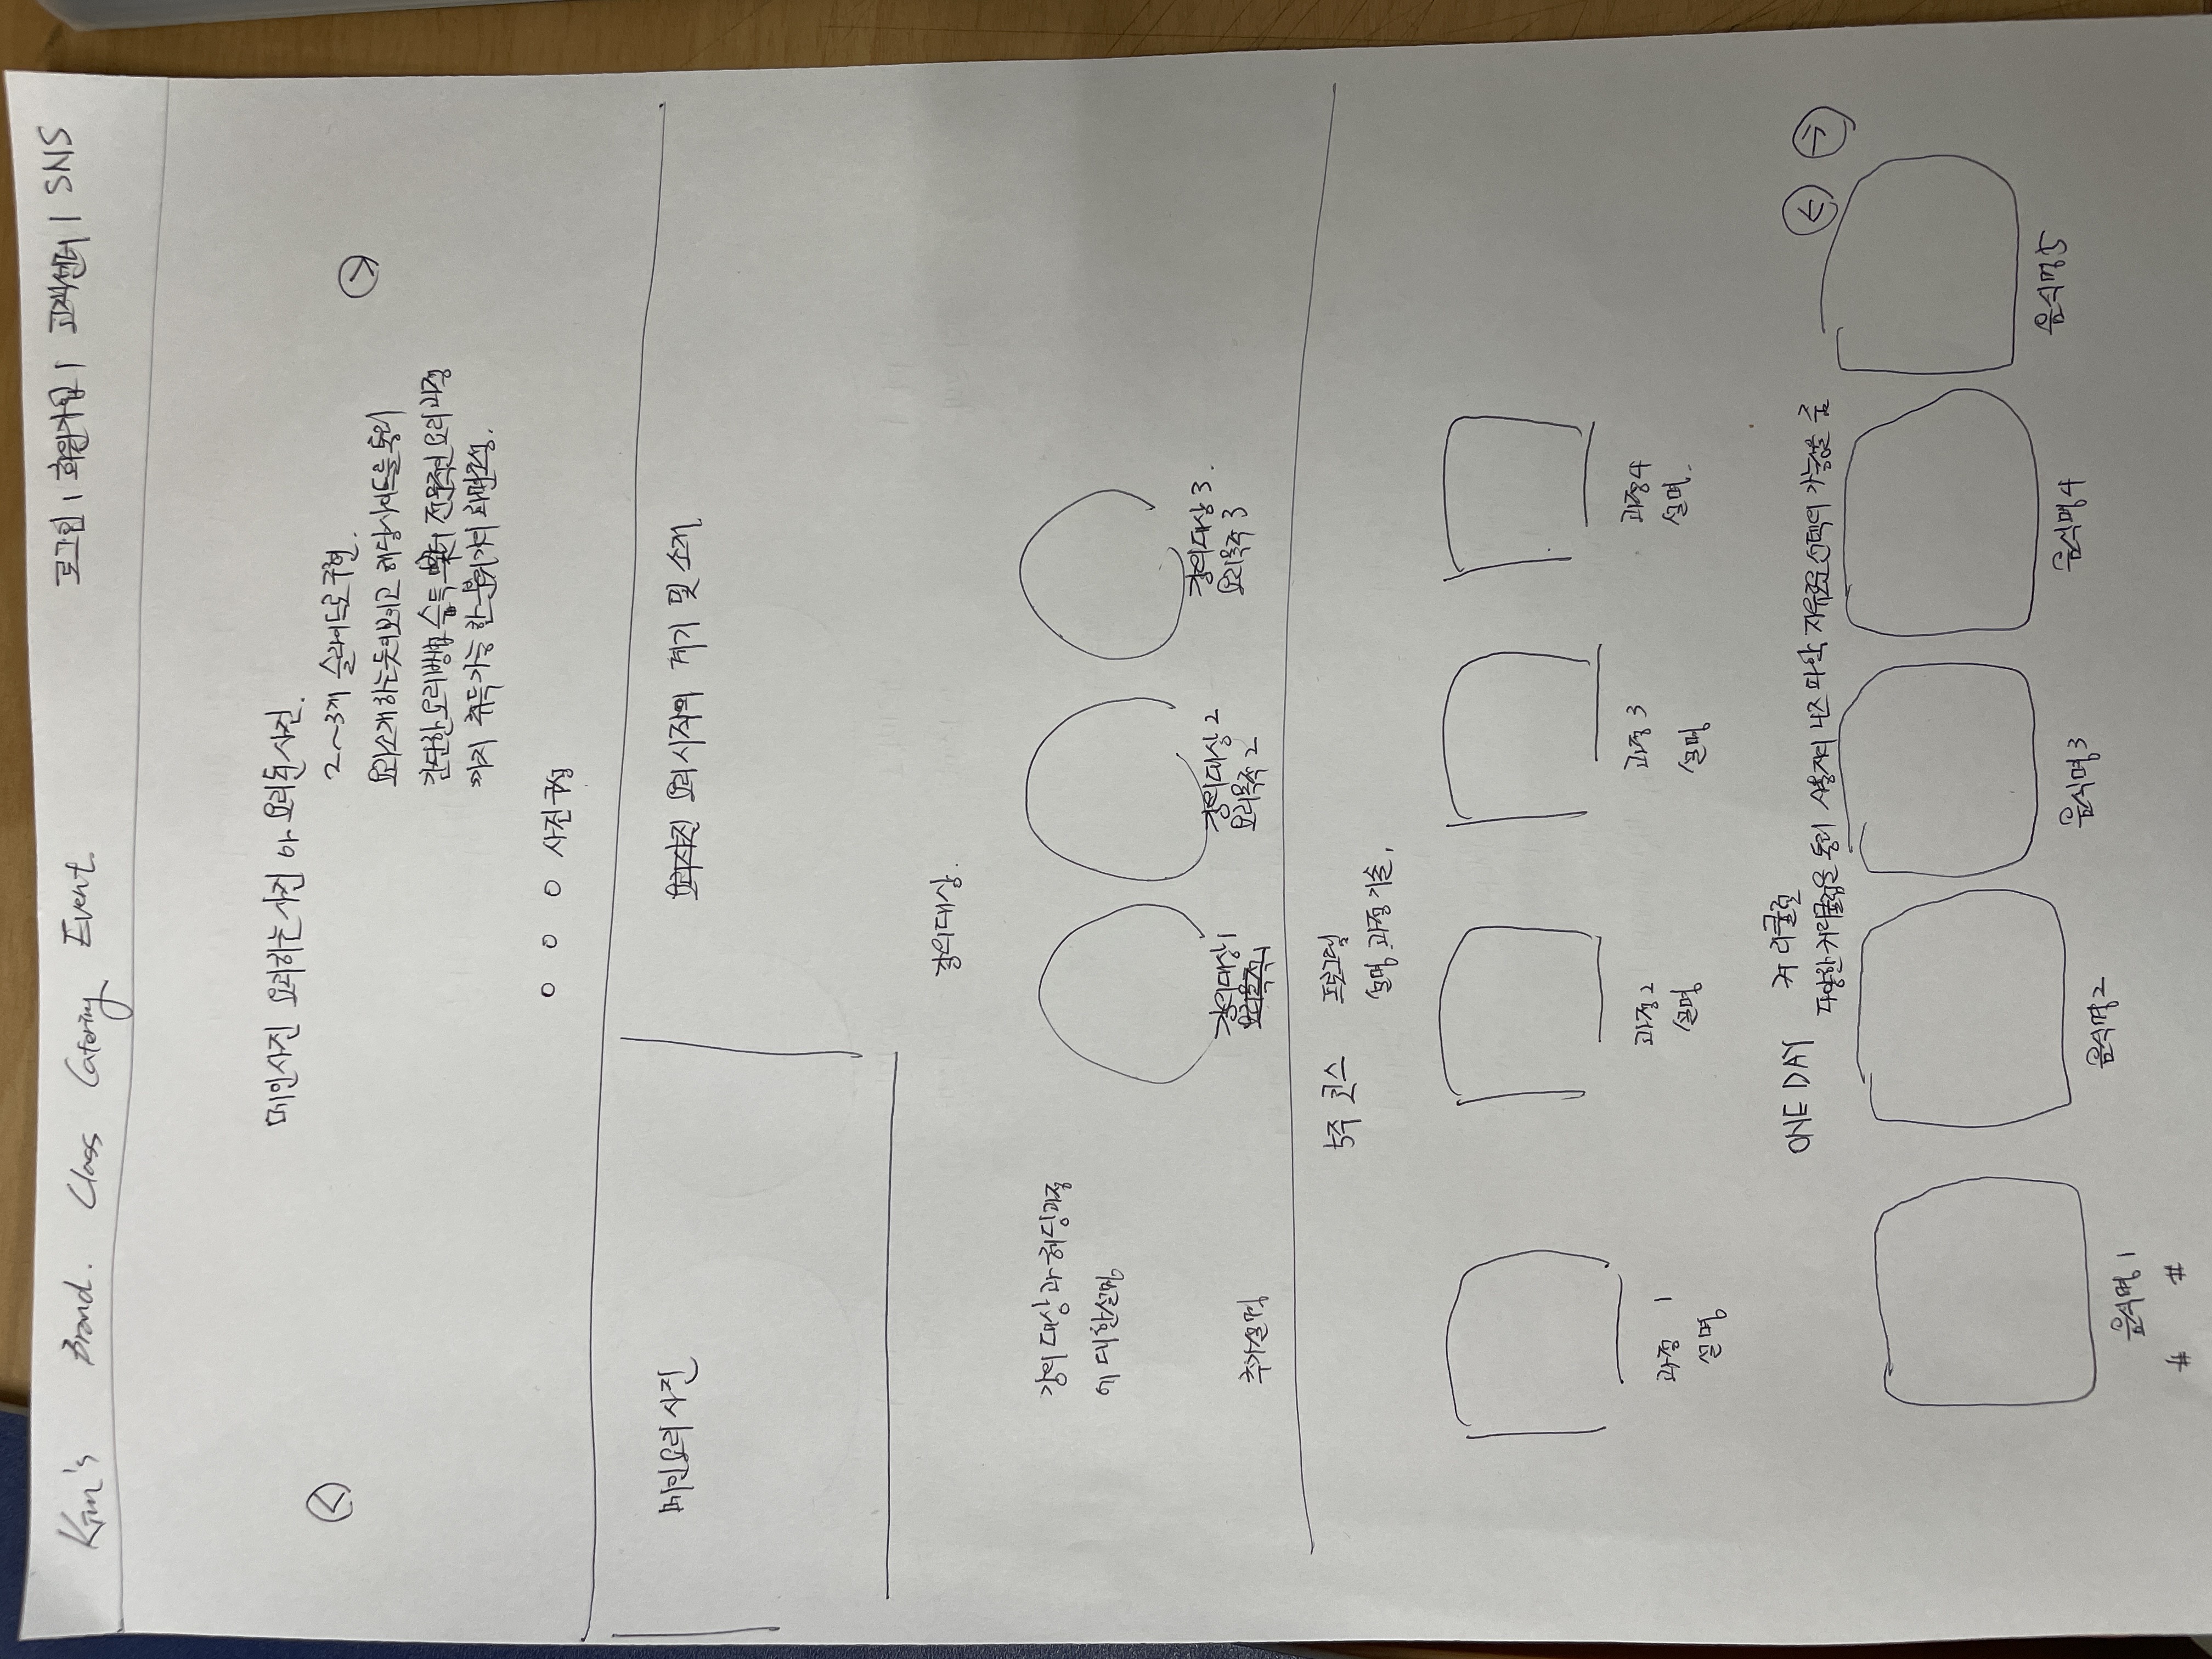 Kim's Brand. Class Catering Event.
로그인 | 회원가입 | 고객센터 | SNS
메인사진 요리하는 사진 아 요리된 사진.
2~3개 슬라이드로 구현.
요리소개 하는듯이보이고 해당사이트를 통해
간단한 요리방법 습득 부터 전문적인 요리 과정
까지 취득가능 한 분위기의 화면조성.
사진구성
메인요리 사진
요리사진 요리 시작의 계기 및 소개
강의대상.
강의 대상과 해당과정
에 대한설명
추가설명
강의대상1
요리목적1
강의대상 2
요리목적 2
강의대상 3.
요리목적 3
5주 코스 프로그램
설명 과정 기술.
과정 1
설명
과정2
설명
과정 3
설명
과정4
설명.
ONE DAY 커리큘럼
다양한 커리큘럼을 통해 사용자의 니즈 파악 자유로운 선택의 가능성을 줌
음식명 1
# #
음식명2
음식명3
음식명4
음식명5